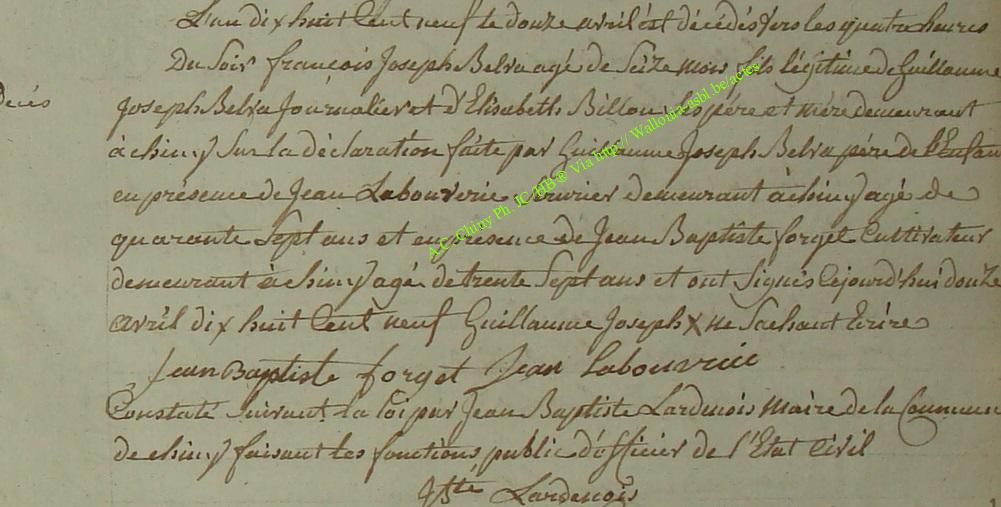 L'an dix huit Cent neuf le douze avril est décédés vers les quatre heures
Du Soir françois Joseph Belva agé de Seize mois fils légitime de Guillaume
Decés
Joseph Belva Journalier et d'Elisabeth Billou père et mère demeurant
à chiny Sur la déclaration faite par Guillaume Joseph Belva père de l'Enfant
en présence de Jean Labouverie demeurant à chiny agé de
quarante Sept ans et en présence de Jean Baptiste forget Cultivateur
demeurant à chiny agé de trente Sept ans et ont Signés Cejourd'hui douze
avril dix huit Cent neuf Guillaume Joseph X ne Sachant Ecrire
Jean Baptiste forget Jean Labouverie
Constaté Suivant la Loi par Jean Baptiste Lardenois Maire de la Commune
de chiny faisant les fonctions public d'officier de l'Etat Civil
JBte Lardenois
A.C. Chiny Ph. JC-HB® Via http://Wallonia-asbl.be/actes